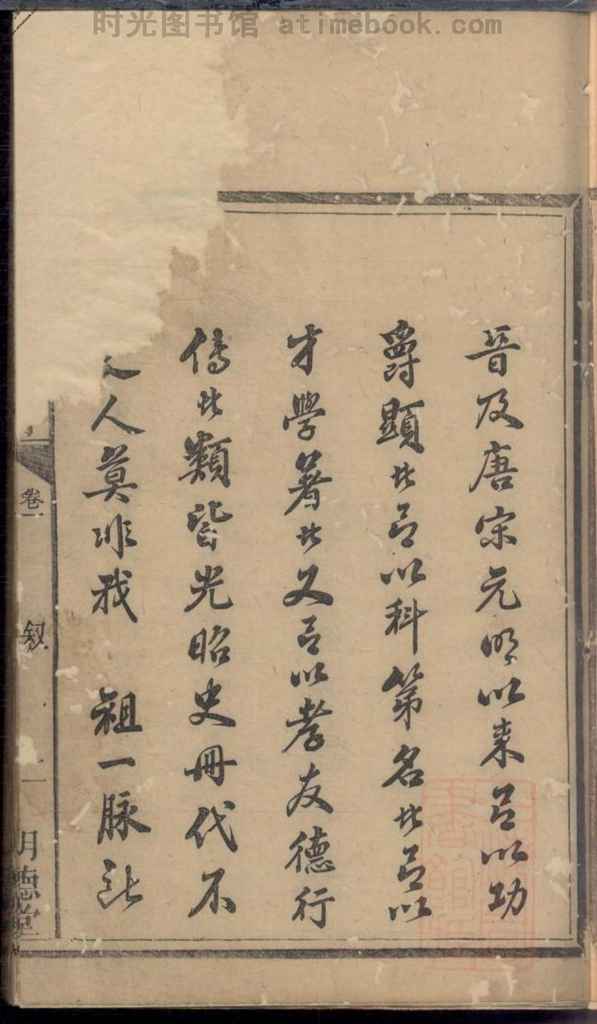 时光图书馆 atimebook.com
晉及唐宋元明以来有以功
爵顯者有以科第名者有以
才學著者又有以孝友德行
傳者類皆光昭史冊代不
人莫非我 祖一脉
卷 叙 一 明德堂